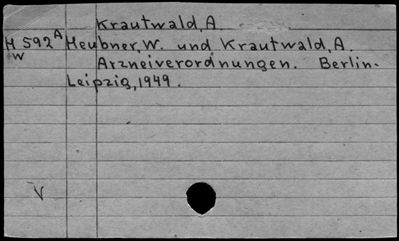 Krautwald, A.
H 592 A Heubner, W. und Krautwald, A.
W Arzneiverordnungen. Berlin-
Leipzig, 1949.
V